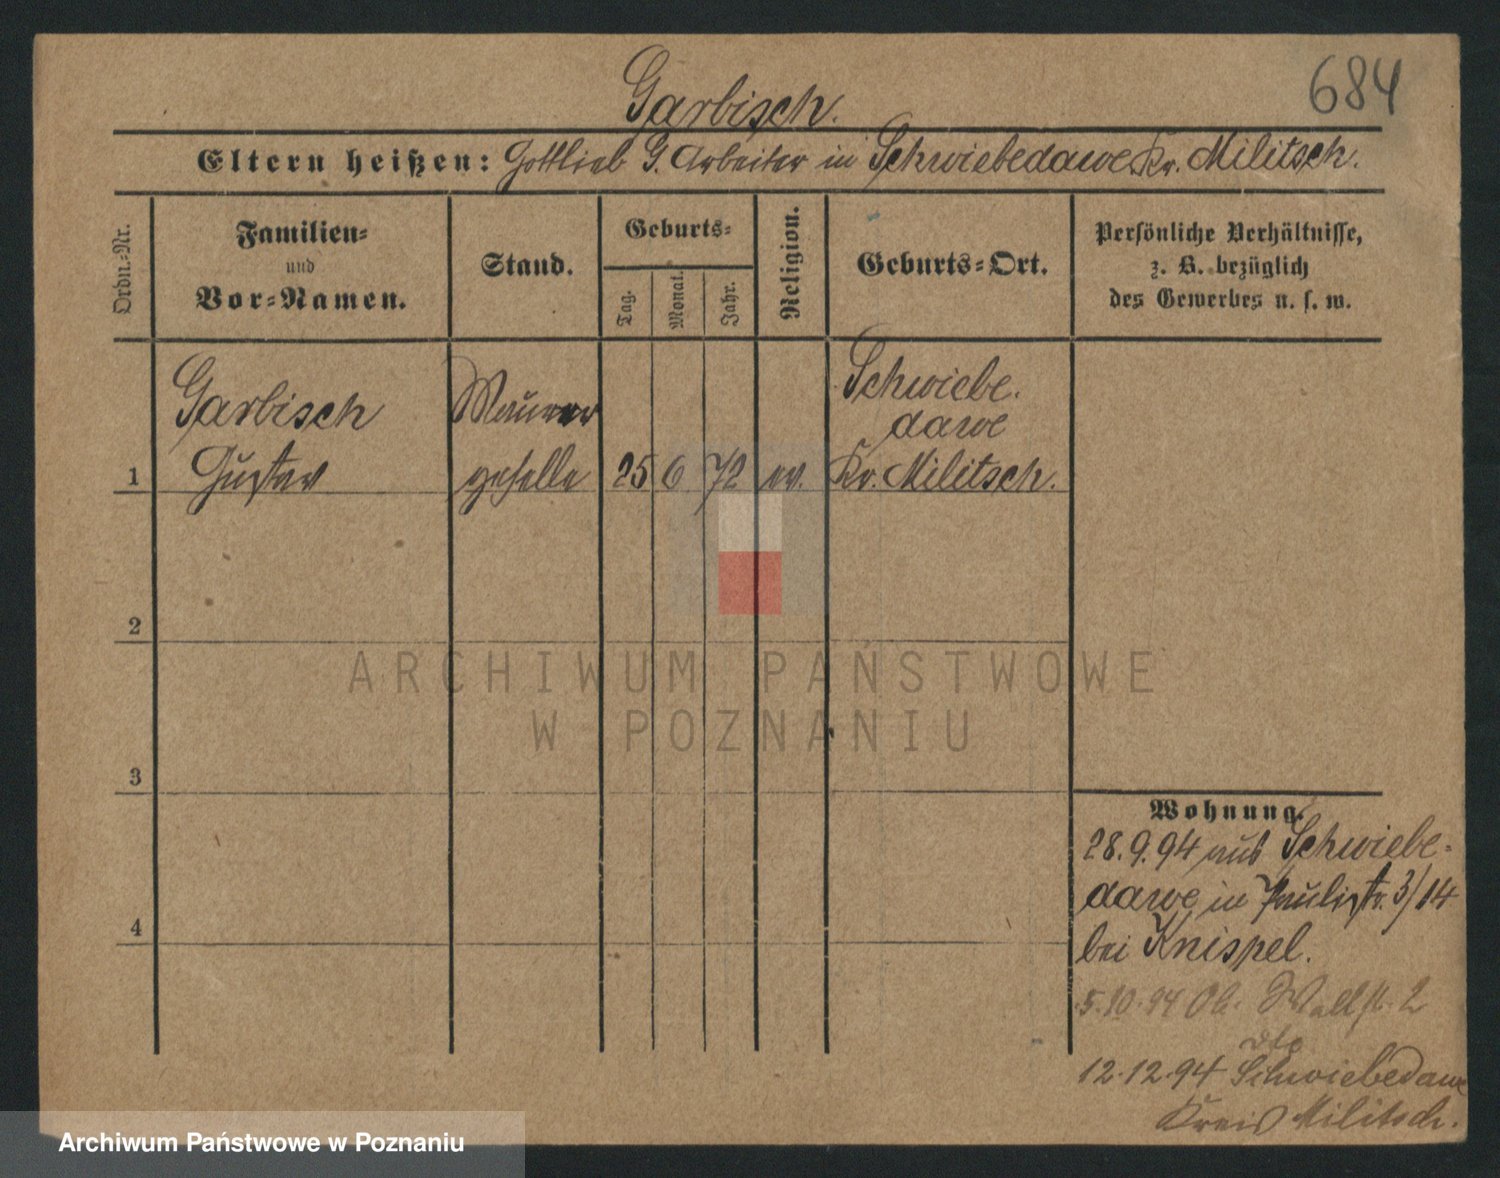 684
Garbisch.
Eltern heißen: Gottlieb G. Arbeiter in Schwiebedawe Kr. Militsch.
Ordn.-Nr.
Familien-
und
Vor-Namen.
Stand.
Geburts-
Tag.
Monat.
Jahr.
Religion.
Geburts-Ort.
Persönliche Verhältnisse,
z. B. bezüglich
des Gewerbes u. s. w.
Garbisch
Gustav
Maurer
geselle
25 6 72 ev.
Schwiebe.
dawe
Kr. Militsch.
1
2
3
4
Wohnung.
28.9.94 aus Schwiebe-
dawe in Paulistr. 3/14
bei Knispel.
5.10.94 Ob. Wallst. 2
dto
12.12.94 Schwiebedawe
Kreis Militsch.
ARCHIWUM PAŃSTWOWE
W POZNANIU
Archiwum Państwowe w Poznaniu